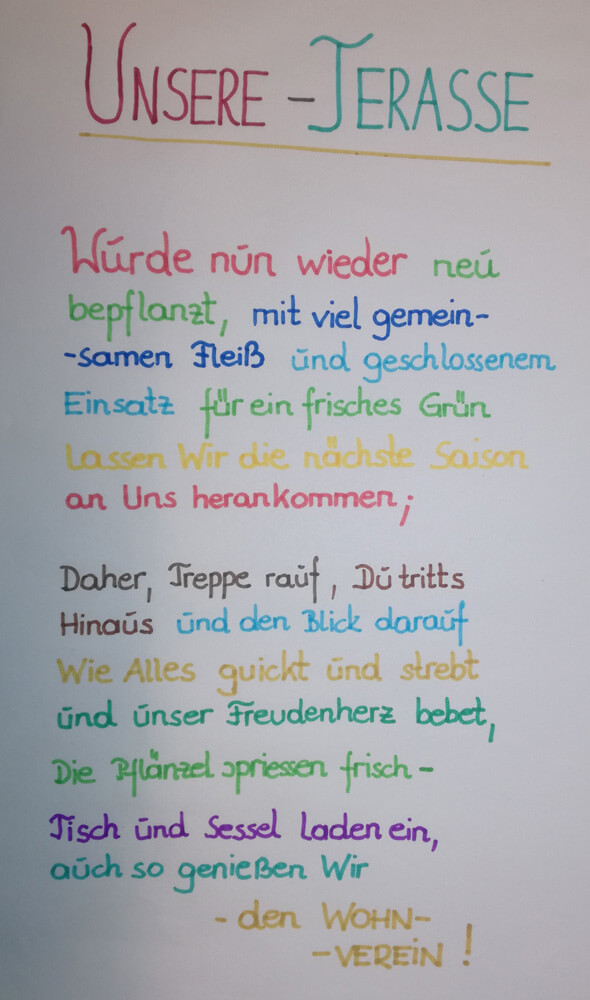 UNSERE - TERASSE
Würde nun wieder neu
bepflanzt, mit viel gemein-
-samen Fleiß und geschlossenem
Einsatz für ein frisches Grün
Lassen Wir die nächste Saison
an Uns herankommen;
Daher, Treppe rauf, Du tritts
Hinaus und den Blick darauf
Wie Alles guickt und strebt
und unser Freudenherz bebet,
Die Pflänzel spriessen frisch -
Tisch und Sessel laden ein,
auch so genießen Wir
- den WOHN-
-VEREiN!